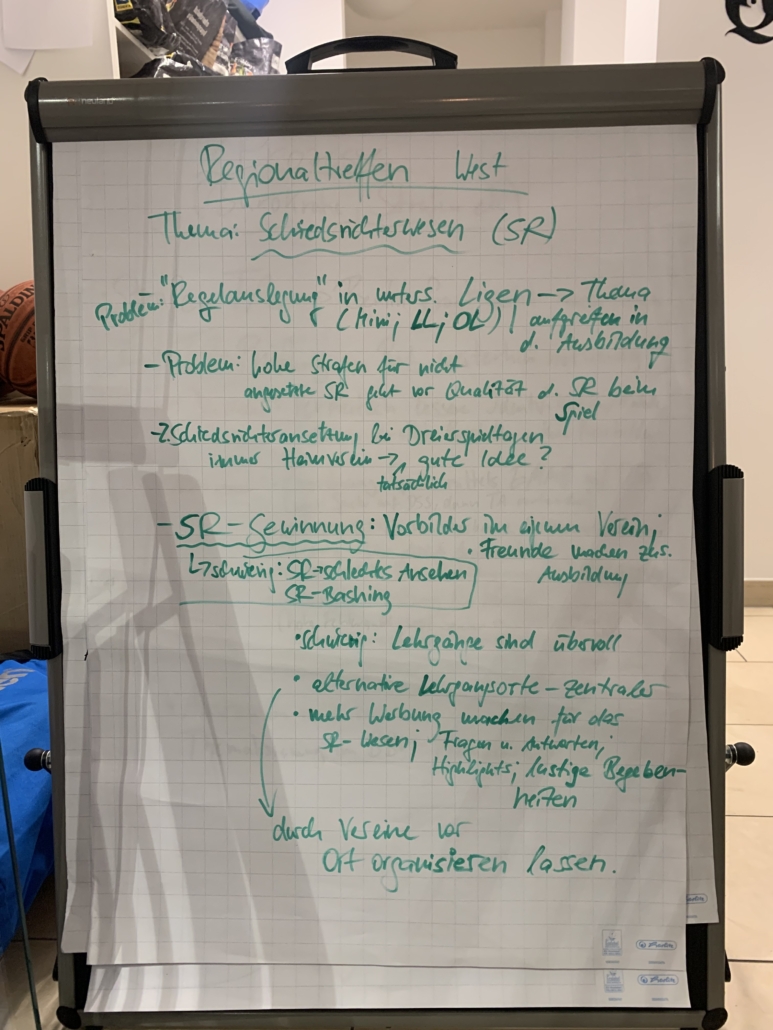 Regionaltreffen West
Thema: Schiedsrichterwesen (SR)
Problem: "Regelauslegung" in unters. Ligen -> Thema
(Mini; LL; OL) | aufgreifen in
d. Ausbildung
- Problem: hohe Strafen für nicht
angesetzte SR geht vor Qualität d. SR beim
Spiel
- Schiedsrichteransetzung bei Dreierspieltagen
immer Heimverein -> gute Idee?
tatsächlich
- SR-Gewinnung: Vorbilder im eigenen Verein;
• Freunde machen zus.
Ausbildung
↳ schwierig: SR -> schlechtes Ansehen
SR-Bashing
• schwierig: Lehrgänge sind übervoll
• alternative Lehrgangsorte - zentraler
• mehr Werbung machen für das
SR-Wesen; Fragen u. Antworten;
Highlights; lustige Begeben-
heiten
durch Vereine vor
Ort organisieren lassen.
SPALDING